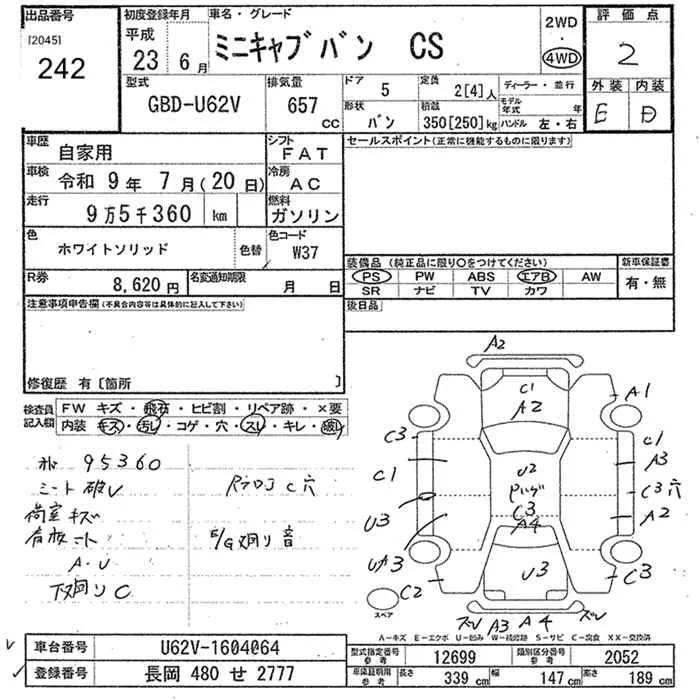 出品番号
[2045]
242
初度登録年月
平成
23年6月
車名・グレード
ミニキャブバン CS
2WD
・
4WD
評価点
2
型式
GBD-U62V
排気量
657
cc
ドア
5
定員
2[4]人
ディーラー・並行
形状
バン
積載
350[250]kg
モデル年式 年
ハンドル 左・右
外装
E
内装
D
車歴
自家用
シフト
FAT
車検
令和 9年 7月(20日)
冷房
AC
走行
9万5千360 km
燃料
ガソリン
色
ホワイトソリッド
色替
色コード
W37
R券
8,620円
名変通知期限
月 日
注意事項申告欄(不具合内容等は具体的に記入して下さい)
修復歴 有〔箇所 〕
セールスポイント(正常に機能するものに限ります)
装備品(純正品に限り○をつけてください)
PS PW ABS エアB AW
SR ナビ TV カワ
新車保証書
有・無
後日品
検査員記入欄
FW キズ・飛石・ヒビ割・リペア跡・×要
内装 キズ・汚レ・コゲ・穴・スレ・キレ・破レ
95360
シート破レ
荷室キズ
A・U
下廻りC
C穴
E/G廻り音
A2
C1
A2
A1
C3
C1
C1
A3
U2
C3穴
C3
A4
A2
U3
UA3
C3
C2
U3
スペア
ズレ
A3
A4
ズレ
A−キズ E−エクボ U−凹み W−補修跡 S−サビ C−腐食 XX−交換済
車台番号
U62V-1604064
登録番号
長岡 480 せ 2777
型式指定番号
参考
12699
類別区分番号
参考
2052
車庫証明用
参考
長さ
339 cm
幅
147 cm
高さ
189 cm